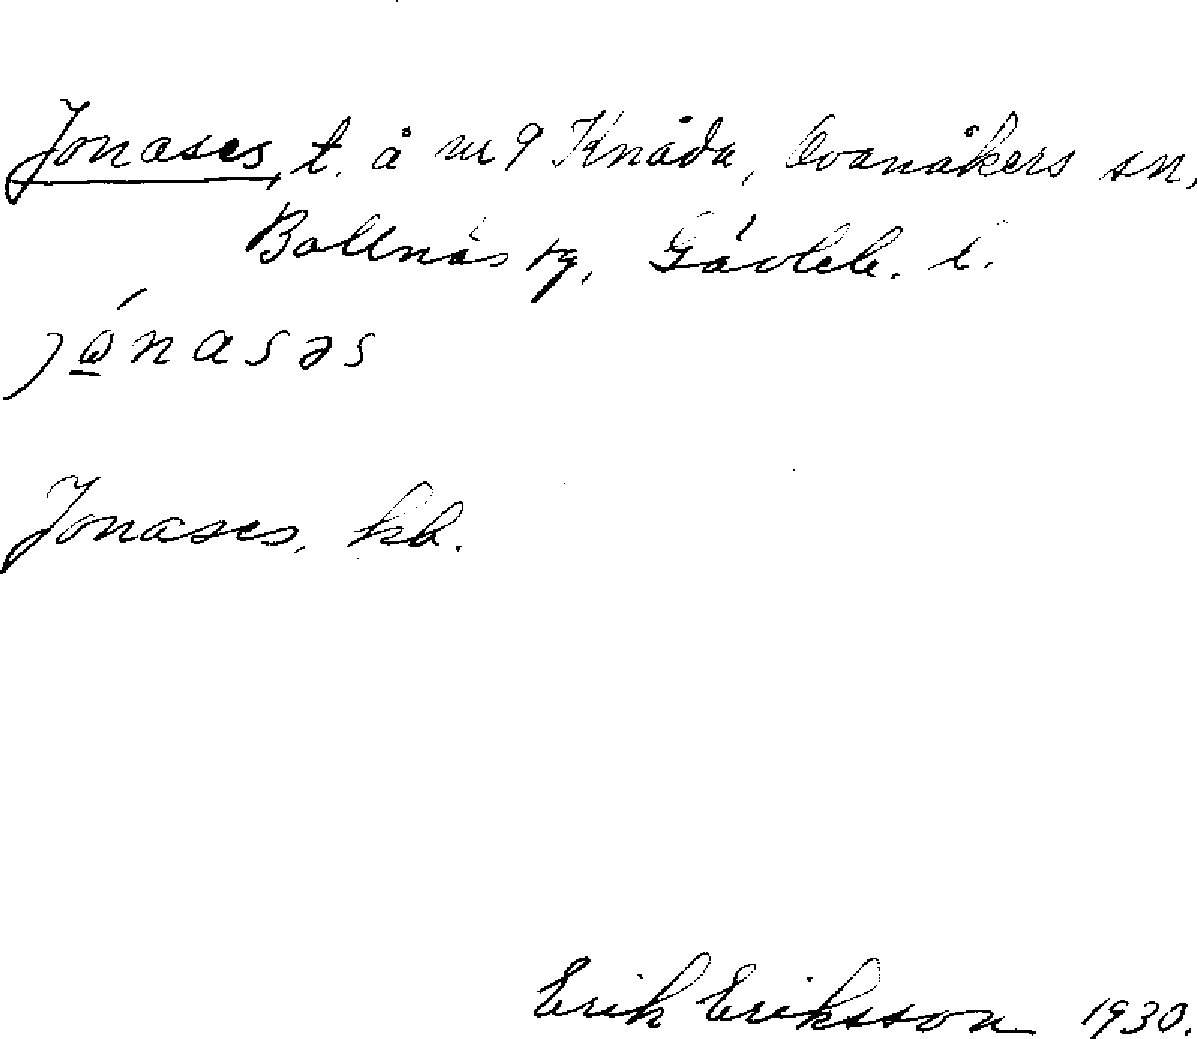 Jonases, t. å nr 9 Knåda, Ovanåkers sn,
Bollnäs tg, Gävleb. l.
jώ̲nasəs
Jonases, kb.
Erik Eriksson 1930.